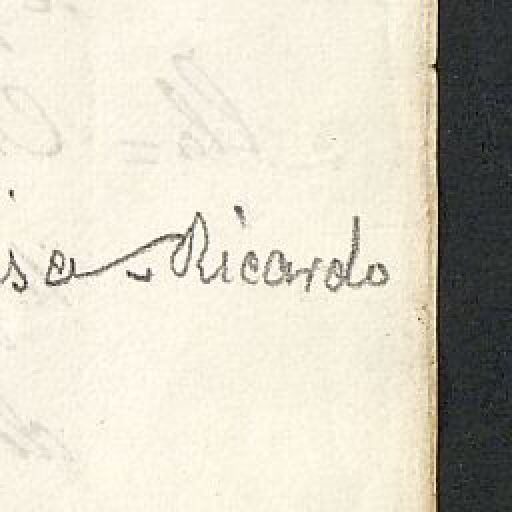 isa Ricardo